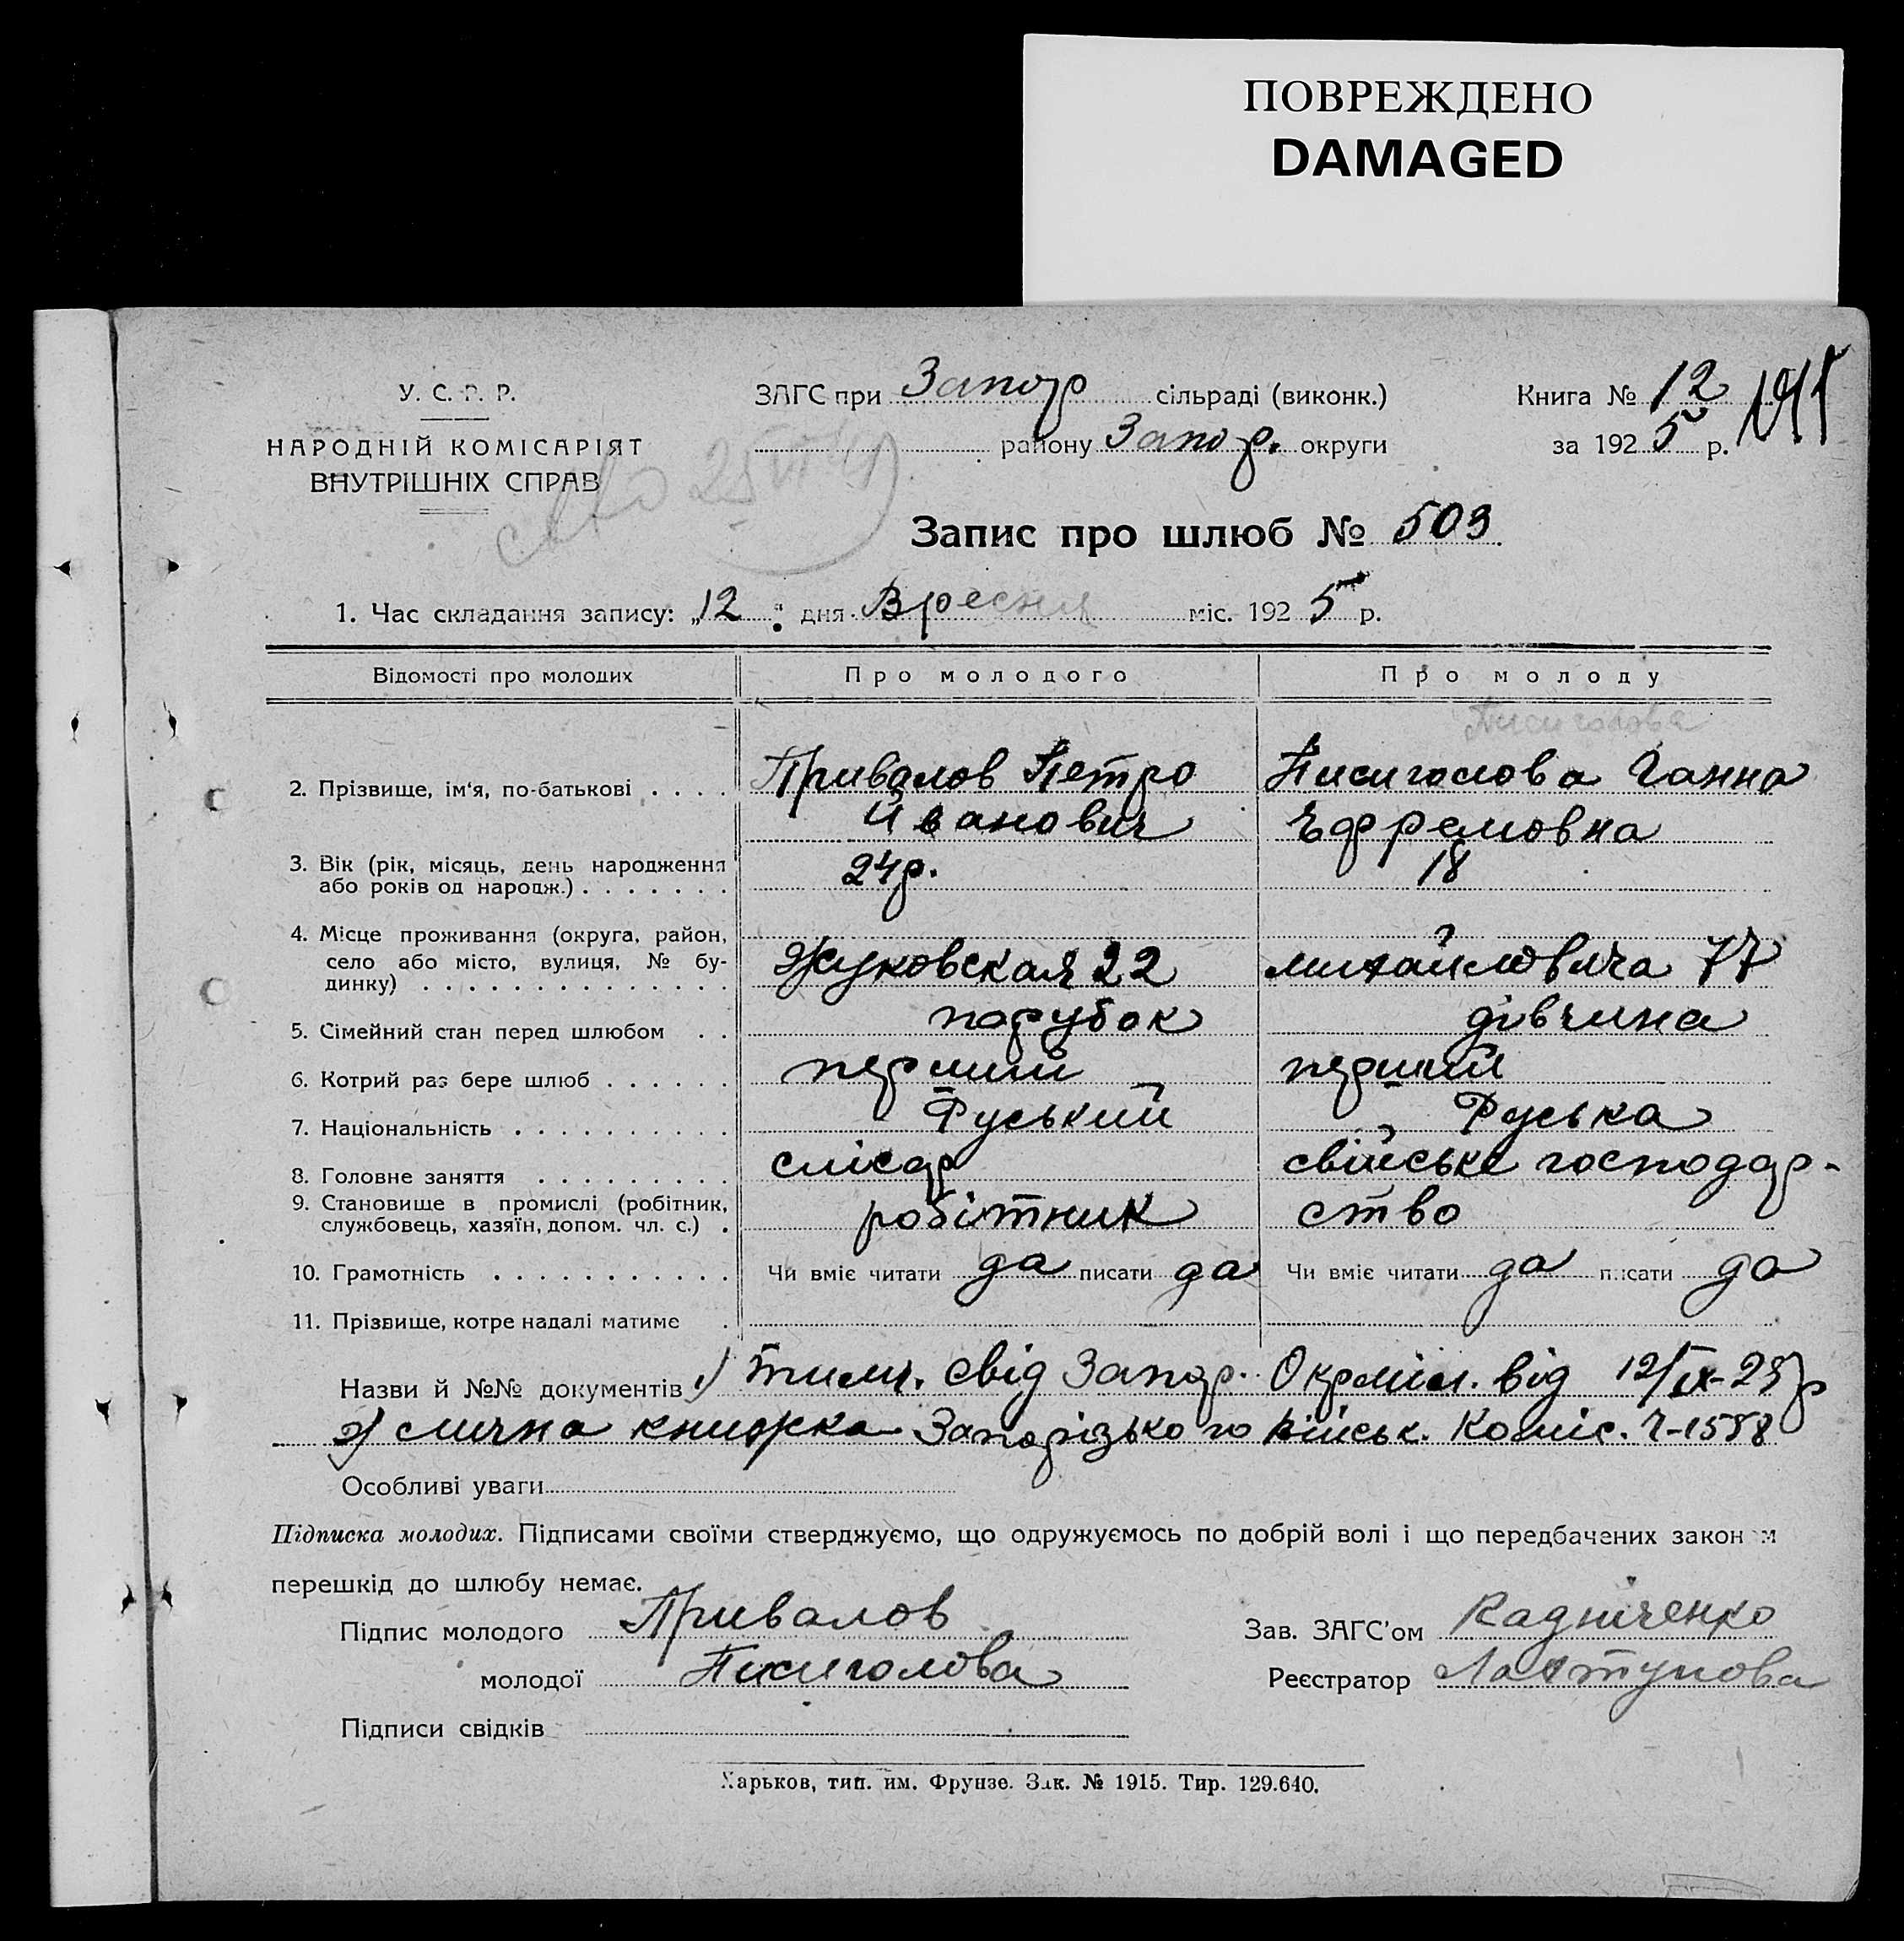 ПОВРЕЖДЕНО
DAMAGED
У. С. Р. Р.
НАРОДНІЙ КОМІСАРІЯТ
ВНУТРІШНІХ СПРАВ
ЗАГС при Запор сільраді (виконк.)
району Запор. округи
Книга № 12
за 1925 р.
Запис про шлюб № 503
1. Час складання запису: „12" дня Вресня міс. 1925 р.
Відомості про молодих Про молодого Про молоду
Писиголова
2. Прізвище, ім'я, по-батькові . . . . Привалов Петро Писиголова Ганна
Иванович Ефремовна
3. Вік (рік, місяць, день народження
або років од народж.) . . . . . . . 24р. 18
4. Місце проживання (округа, район,
село або місто, вулиця, № бу-
динку) . . . . . . . . . . . . . . Жуковская 22 михайловича 77
5. Сімейний стан перед шлюбом . . парубок дівчина
6. Котрий раз бере шлюб . . . . . . перший перший
7. Національність . . . . . . . . . . Руський Руська
8. Головне заняття . . . . . . . . . слісар свійське господар-
9. Становище в промислі (робітник,
службовець, хазяїн, допом. чл. с.) . робітник ство
10. Грамотність . . . . . . . . . . . Чи вміє читати да писати да Чи вміє читати да писати да
11. Прізвище, котре надалі матиме .
Назви й №№ документів 1) тимч. свід Запор. Окрміл. від 12/IX-25р
2) лична книжка Запорізького Військ. Коміс. Ч-1558
Особливі уваги
Підписка молодих. Підписами своїми стверджуємо, що одружуємось по добрій волі і що передбачених законом
перешкід до шлюбу немає.
Підпис молодого Привалов Зав. ЗАГС'ом
молодої Писиголова Реєстратор
Підписи свідків
Харьков, тип. им. Фрунзе. Зак. № 1915. Тир. 129.640.